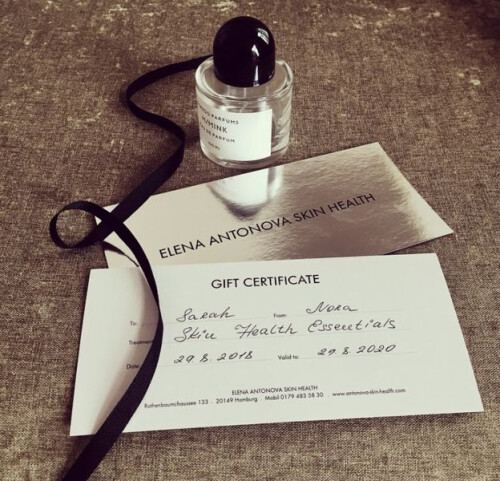 PARFUMS
M/MINK
PARFUM
ELENA ANTONOVA SKIN HEALTH
GIFT CERTIFICATE
To: Sarah From: Nora
Treatment Skin Health Essentials
Date 29.8.2018 Valid to: 29.8.2020
ELENA ANTONOVA SKIN HEALTH
Rothenbaumchaussee 133 . 20149 Hamburg . Mobil 0179 483 58 30 . www.antonova-skin-health.com